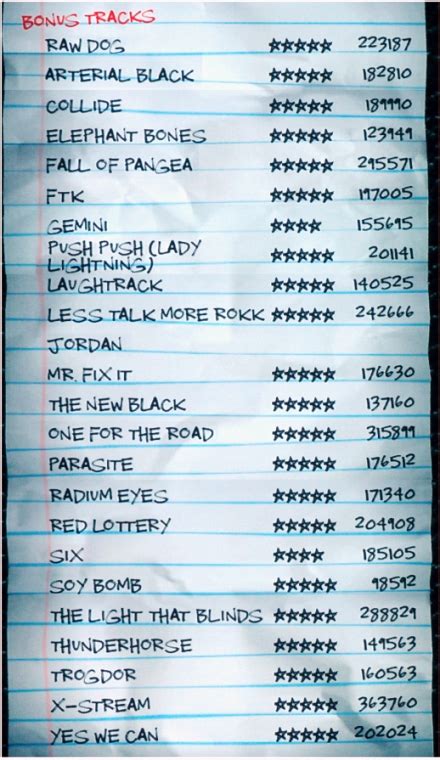 BONUS TRACKS
RAW DOG ★★★★★ 223187
ARTERIAL BLACK ★★★★★ 182810
COLLIDE ★★★★★ 189990
ELEPHANT BONES ★★★★★ 123949
FALL OF PANGEA ★★★★★ 295571
FTK ★★★★★ 197005
GEMINI ★★★★ 155695
PUSH PUSH (LADY
LIGHTNING) ★★★★★ 201141
LAUGHTRACK ★★★★★ 140525
LESS TALK MORE ROKK ★★★★★ 242666
JORDAN
MR. FIX IT ★★★★★ 176630
THE NEW BLACK ★★★★★ 137160
ONE FOR THE ROAD ★★★★★ 315899
PARASITE ★★★★★ 176512
RADIUM EYES ★★★★★ 171340
RED LOTTERY ★★★★★ 204908
SIX ★★★★ 185105
SOY BOMB ★★★★★ 98592
THE LIGHT THAT BLINDS ★★★★★ 288829
THUNDERHORSE ★★★★★ 149563
TROGDOR ★★★★★ 160563
X-STREAM ★★★★★ 363760
YES WE CAN ★★★★★ 202024